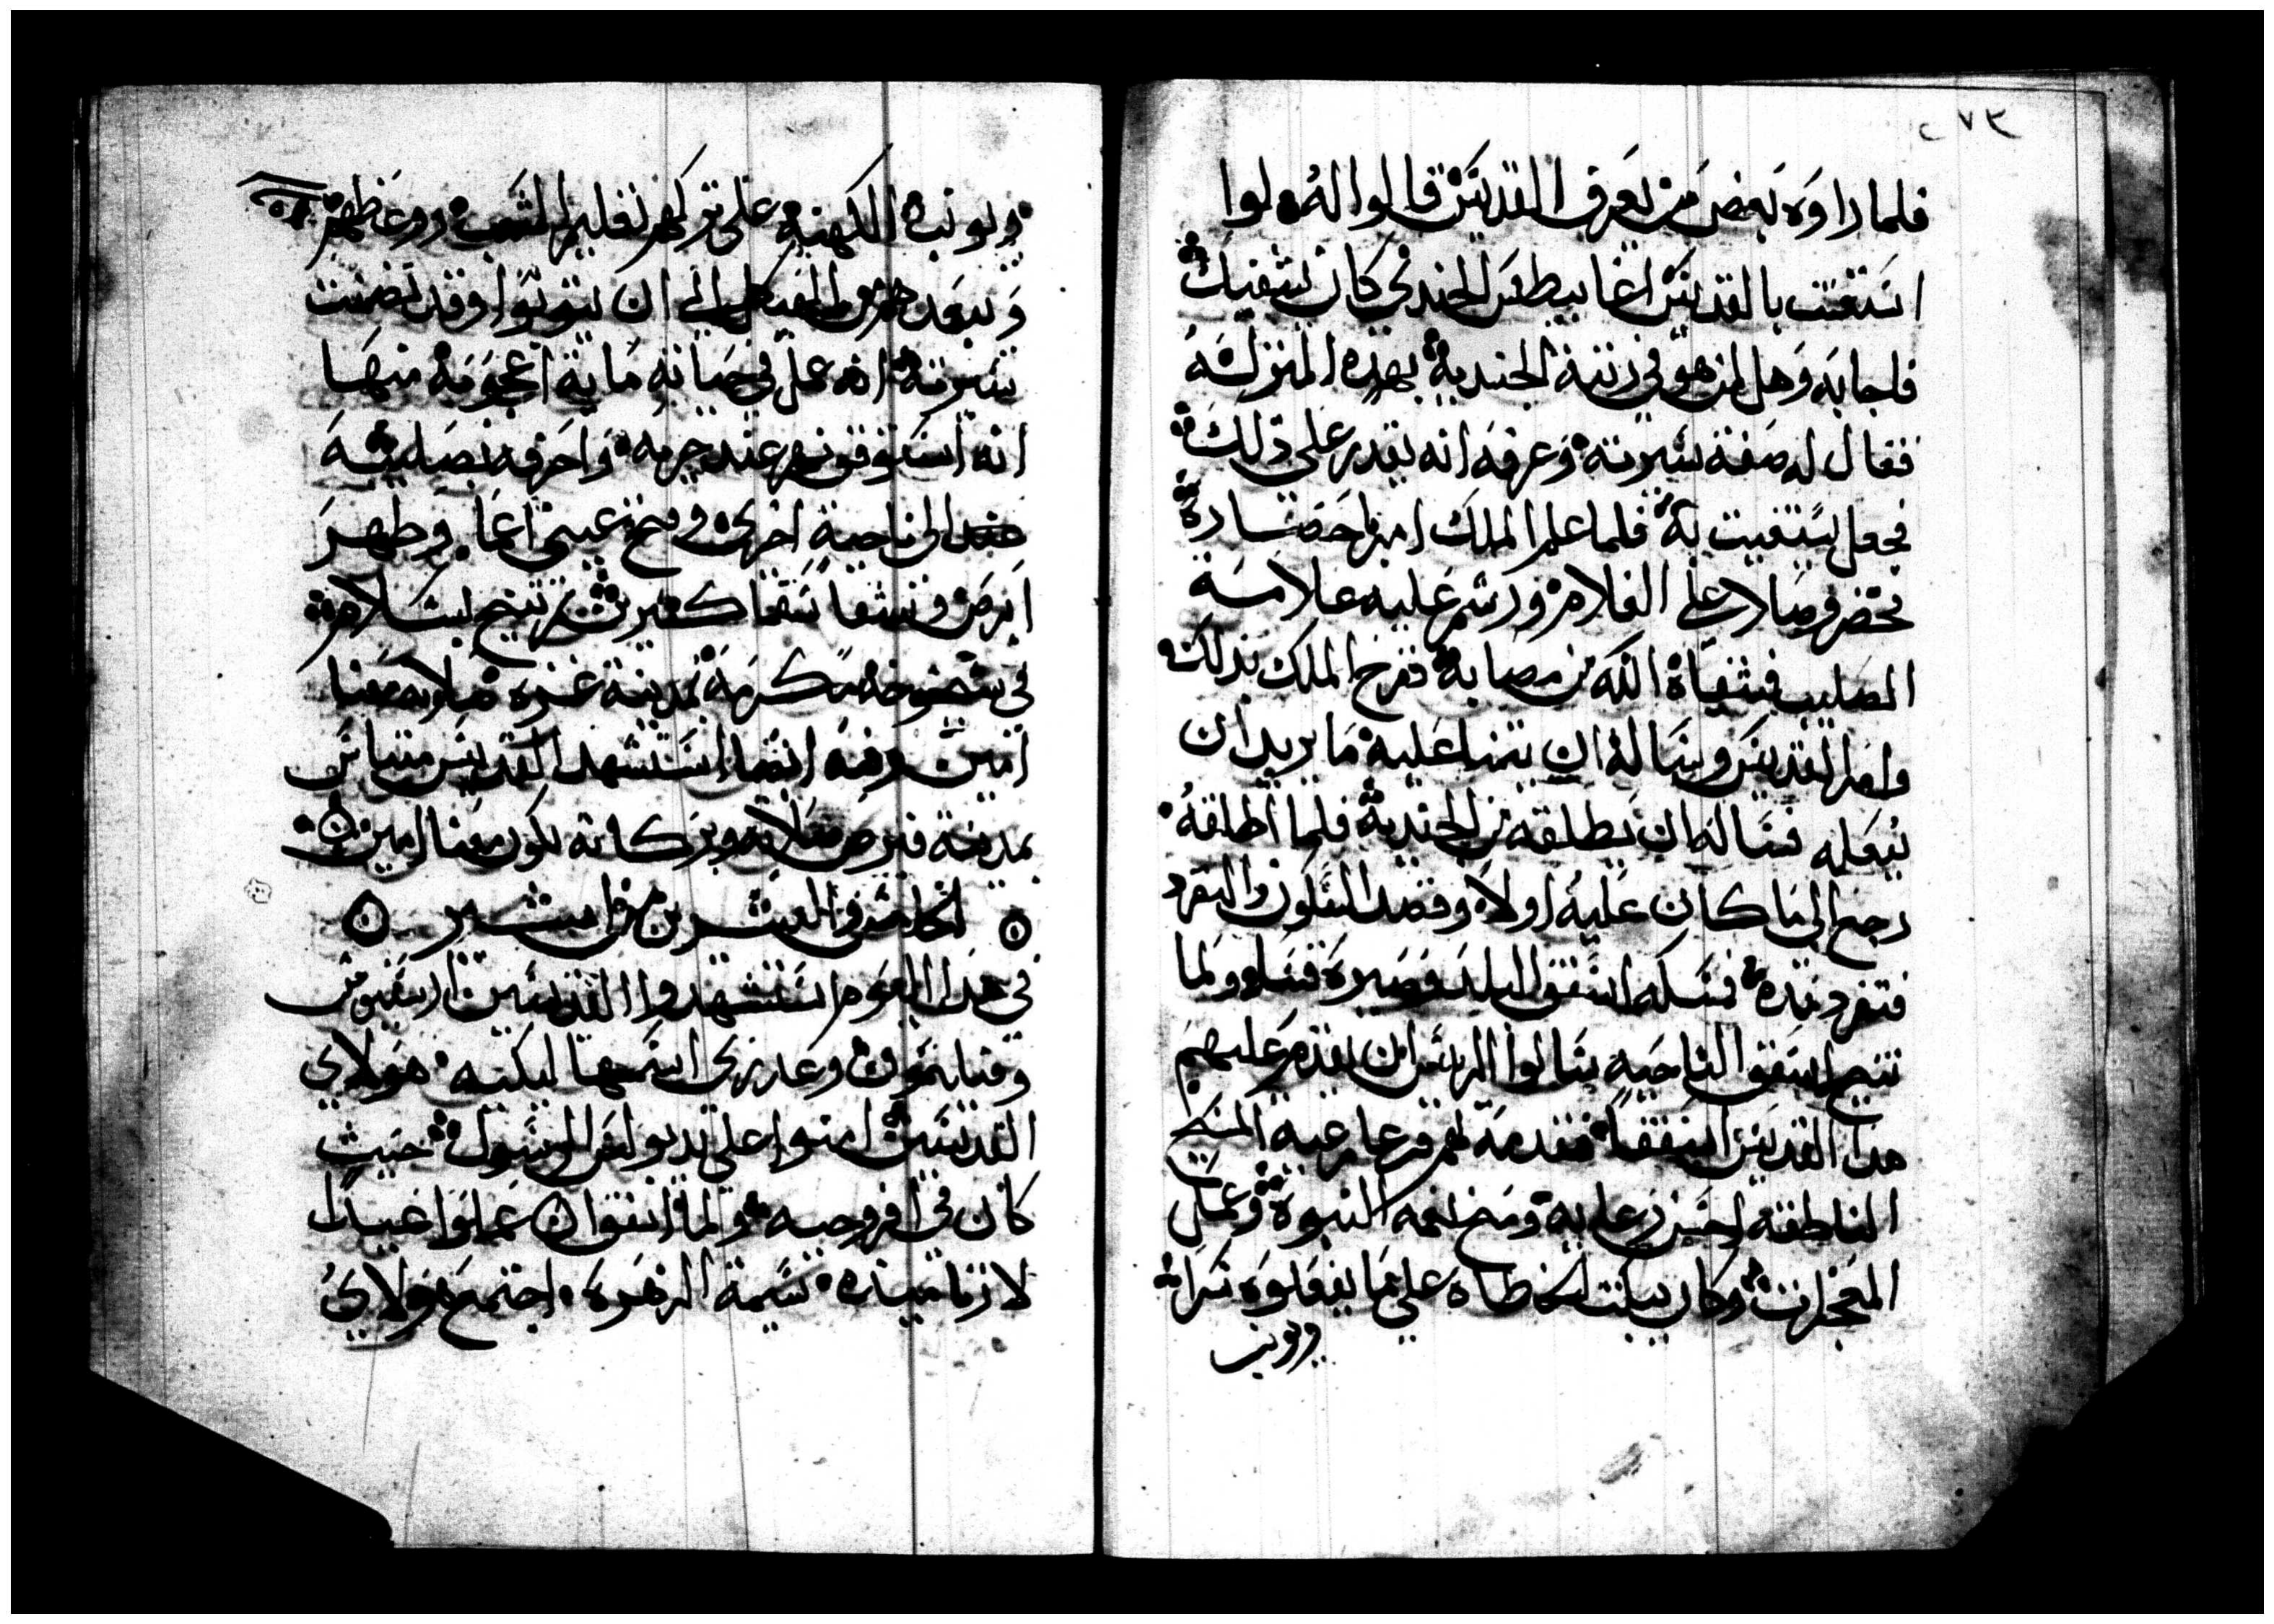 ٢٧٣
فلما راوه بعض من يعرف القديس قالوا له لوا
استغيت بالقديس اغابيطس الجندي كان يشفيك
فاجابه وهل من هو في زينة الجندية بهده المنزله
فقال له صفة سيرته وعرفه انه يقدر على دلك
فجعل يستغيت به فلما علم الملك امر باحضاره
فحضر وصلا على الغلام ورشم عليه علامة
الصليب فشفاه الله من مصابه ففرح الملك بدلك
وامر القديس وساله ان يتمنا عليه ما يريد ان
يفعله فساله ان يطلقه من الجندية فلما اطلقه
رجع الي ما كان عليه اولا وقصد السكون والتفرد
فتفرد مده فمسكه اسقف البلد وصيره قسا ولما
تنيح اسقف الناحيه سالوا الريس ان يقدم عليهم
هدا القديس اسقفا فقدمه لهم فرعا رعية المسيح
الناطقه احسن رعاية ومنح نعمه النبوه وعمل
المعجزات وكان يبكت الخطاه على ما يفعلوه سرا
ويونب
ويونب الكهنه على تركهم تعليم الشعب دوعظهم
ويبعدهم من الهيكل الي ان يتوبوا وقد تضمنت
سيرته انه عمل في حياته ماية اعجوبة منها
انه استوقف نهر عند جريه واحرفه بصليبه
الى ناحية اخرى وفتح عيني اعما وطهر
ابرص وشفا سقما كتيرين تم تنيح بسلام
في شيخوخة مكرمه بمدينة غزه صلاته معنا
امين وفيه ايضا استشهد القديس متياس
بمدينة قبرص صلاته وبركاته تكون معنا امين
الخامس والعشرين من امشير
في هدا اليوم استشهدوا القديسين ارسنوس
وفيليمون وعدرى اسمها ليكيه هولاي
القديسين امنوا على يد بولس الرسول حيث
كان في افروجيه ولما اتفق ان عملوا عيدا
لارتاميده سيمة الزهره اجتمع هولاي